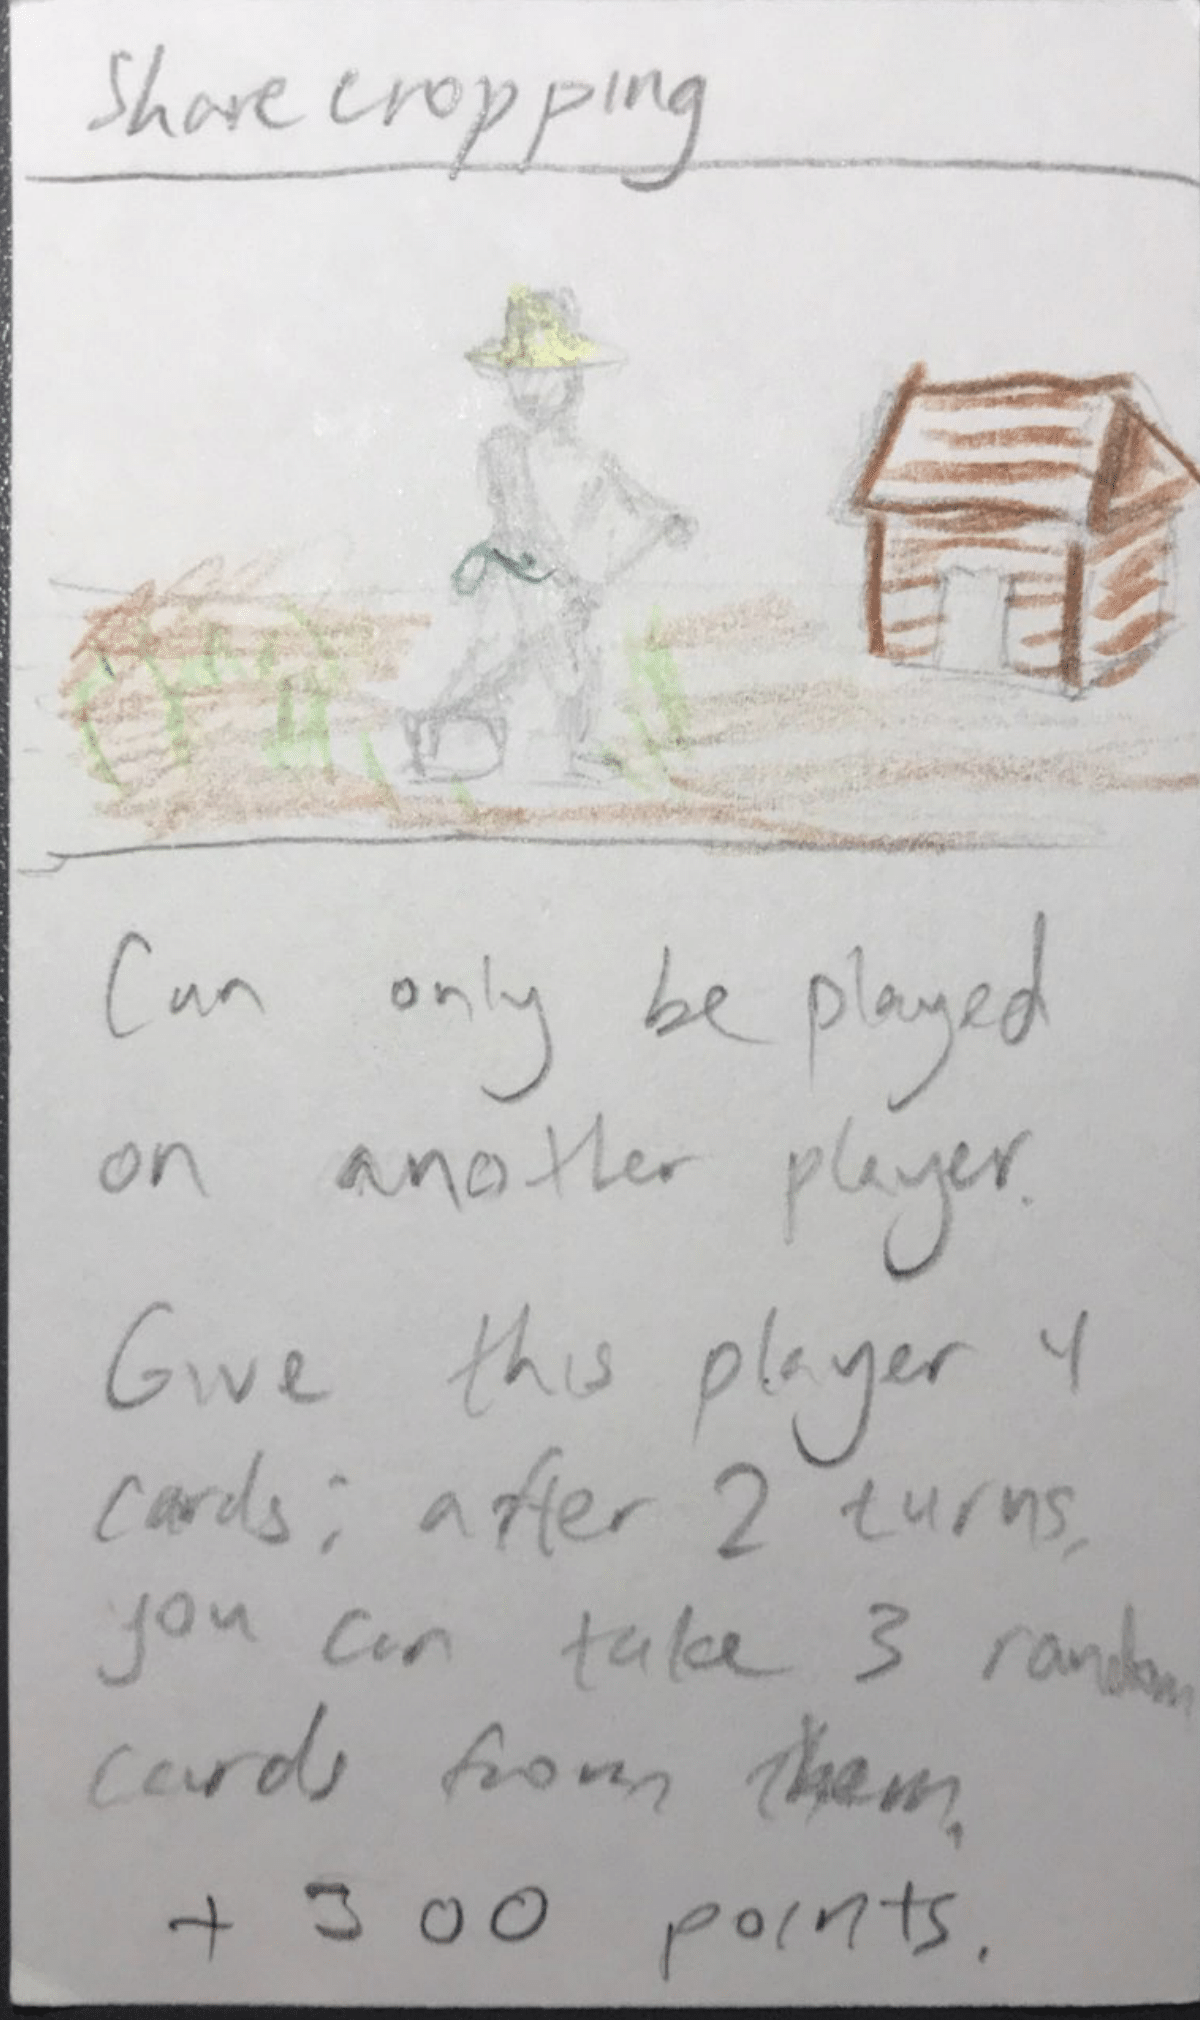 Sharecropping
Can only be played
on another player.
Give this player 4
cards; after 2 turns,
you can take 3 random
cards from them.
+ 300 points.